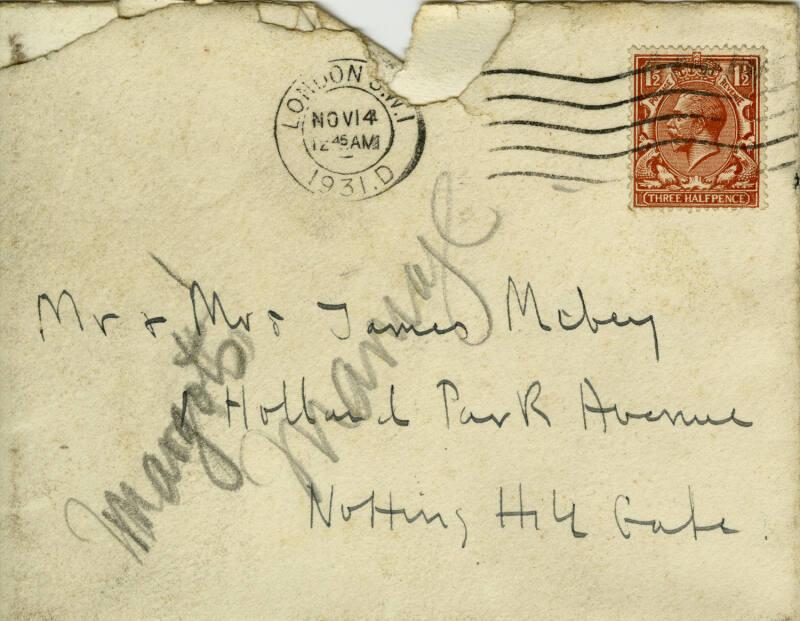 LONDON S.W.1
NOV 14
12 45 AM
1931.D
1½ 1½
POSTAGE REVENUE
THREE HALFPENCE
Mr & Mrs James McBey
1 Holland Park Avenue
Notting Hill Gate.
Margot's
Marriage